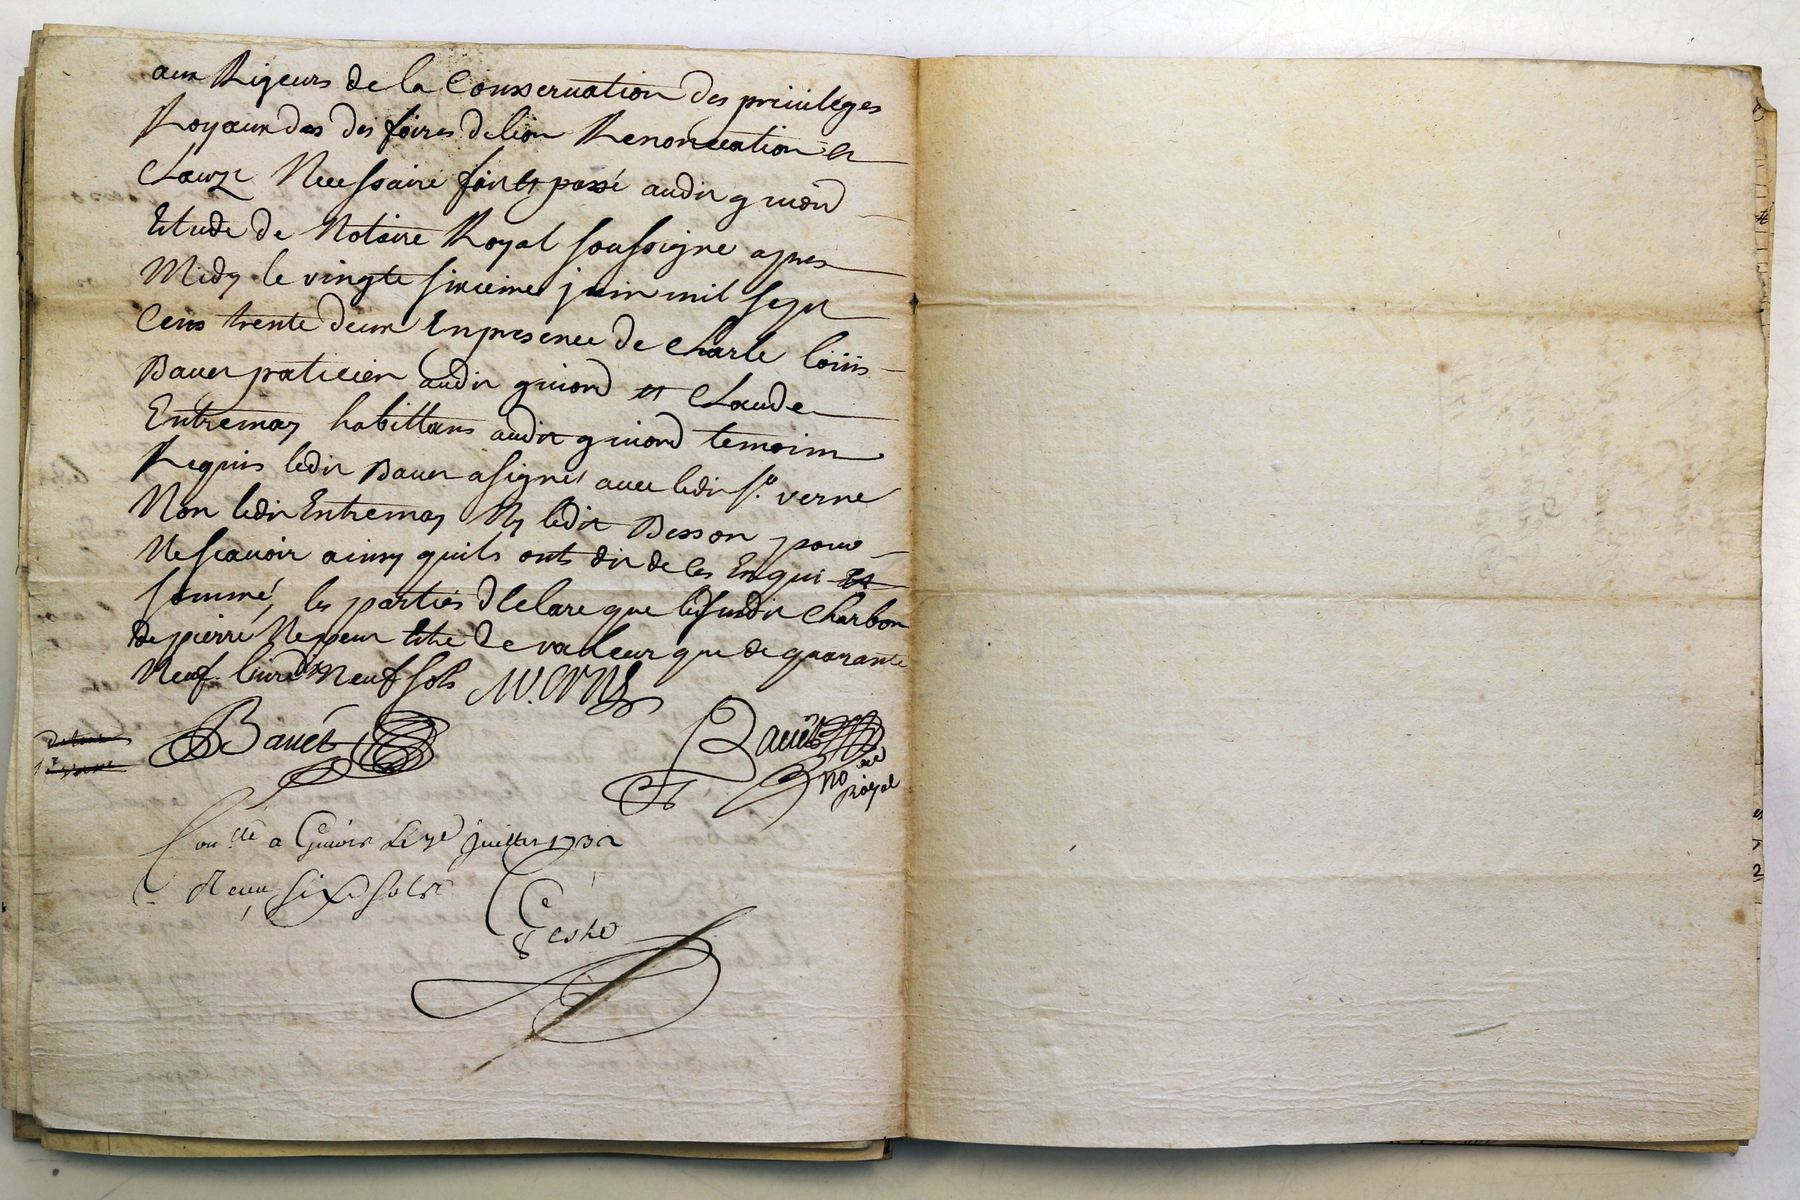 aux Rigeurs de la Conservation des privileges
Royaux des des foires de lion Renonciation et
Clauze Necessaire fait et passé audit givord
Etude de Notaire Royal soussigne apres
Midy le vingte sixieme juin mil sept
Cens trente deux En presence de Charle loüis
Bavet praticien audit givord et Claude
Entremay habittans audit givord temoins
Requis ledit Bavet a signé avec ledit sr. verne
Non ledit Entremay Ny ledit Besson pour
Ne scavoir ainsy quils ont dit de ces Enqui et
sommé, les parties declare que ledsusdit Charbon
de pierre Ne peut titre de valeur que de quarante
Neuf livres Neuf sols M. verne
Bavet Bavet
no re
Royal
Con.llé a Givors le 7e juillet 1732
Receu six sols